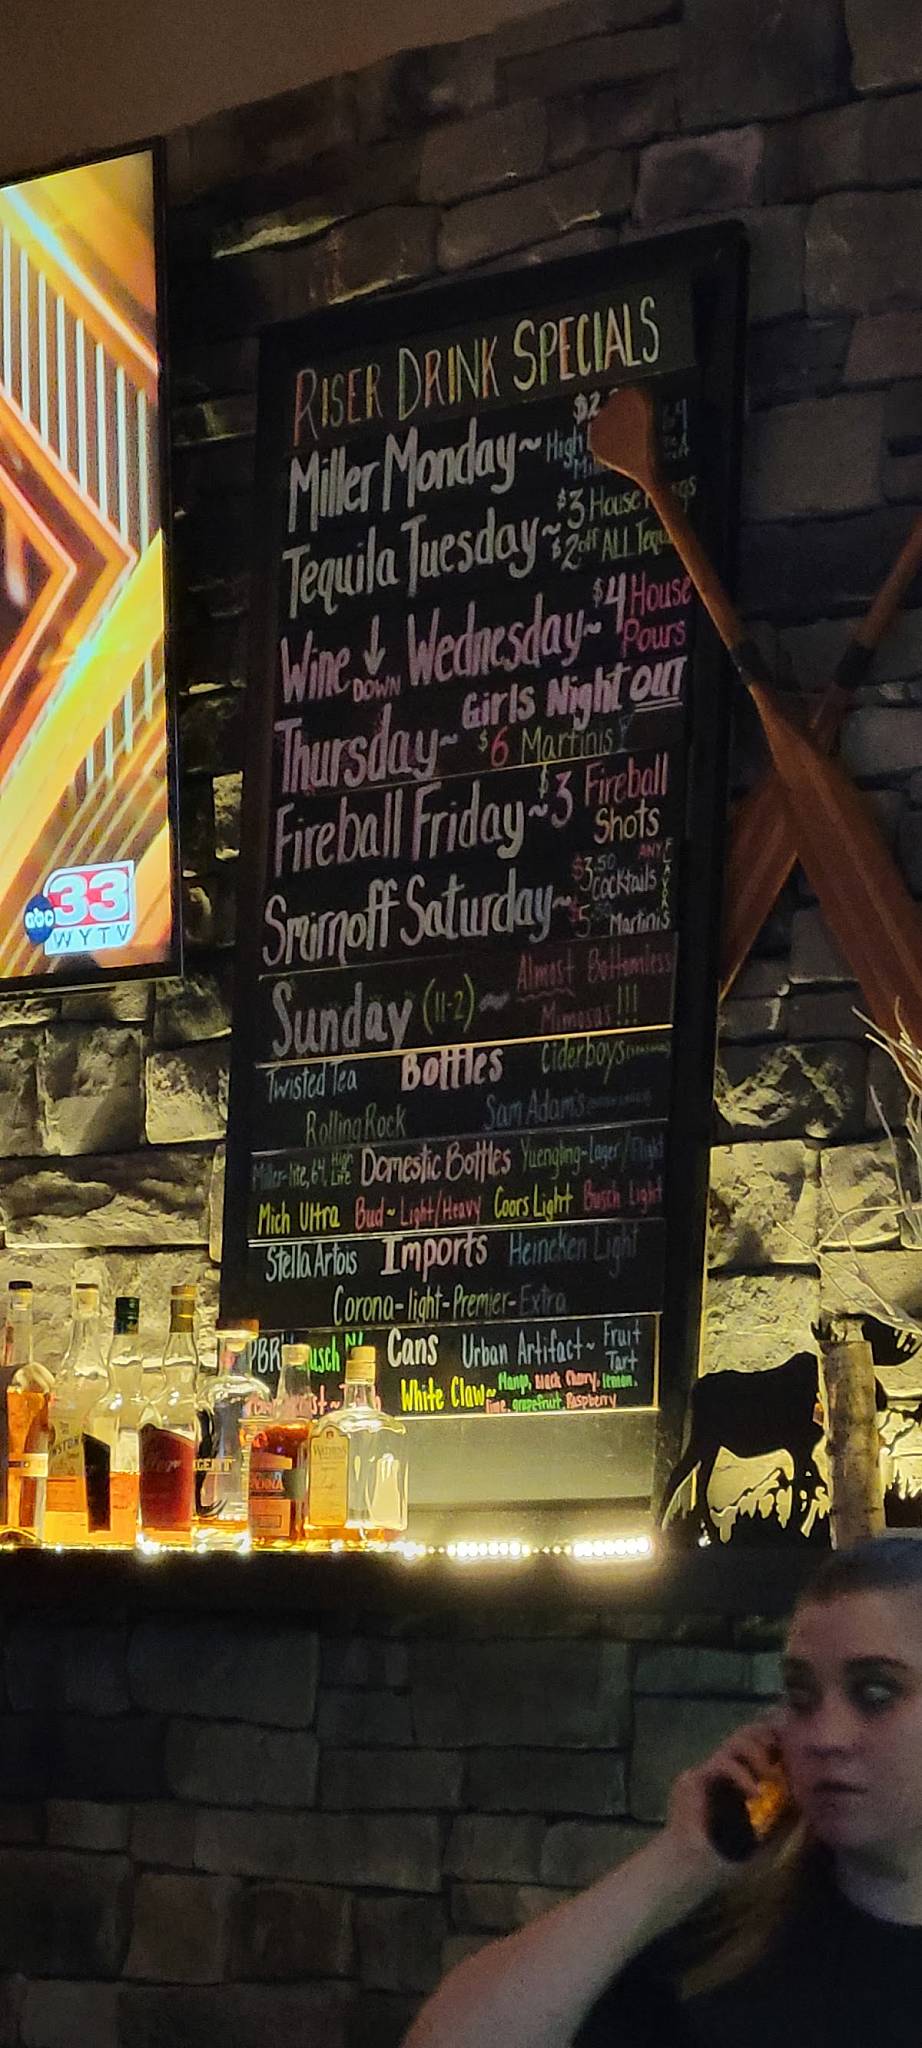 RISER DRINK SPECIALS
Miller Monday~
$2
High
Tequila Tuesday~
$3 House
$2 off ALL
Wine ↓ DOWN Wednesday~ $4 House
Pours
Thursday~ Girls Night OUT
$6 Martinis
Fireball Friday~ $3 Fireball
Shots
Smirnoff Saturday~ $3.50 ANY
cocktails
$5 Martinis
Sunday (11-2)~ Almost Bottomless
Mimosas!!!
Twisted Tea Bottles Ciderboys
Rolling Rock Sam Adam's
Miller-lite, 64, High Life Domestic Bottles Yuengling-Lager/Flight
Mich Ultra Bud~Light/Heavy Coors Light Busch Light
Stella Artois Imports Heineken Light
Corona-light-Premier-Extra
PBR Cans Urban Artifact~ Fruit
Tart
White Claw~ Mango, Black Cherry, lemon,
lime, grapefruit, Raspberry
abc 33
WYTV